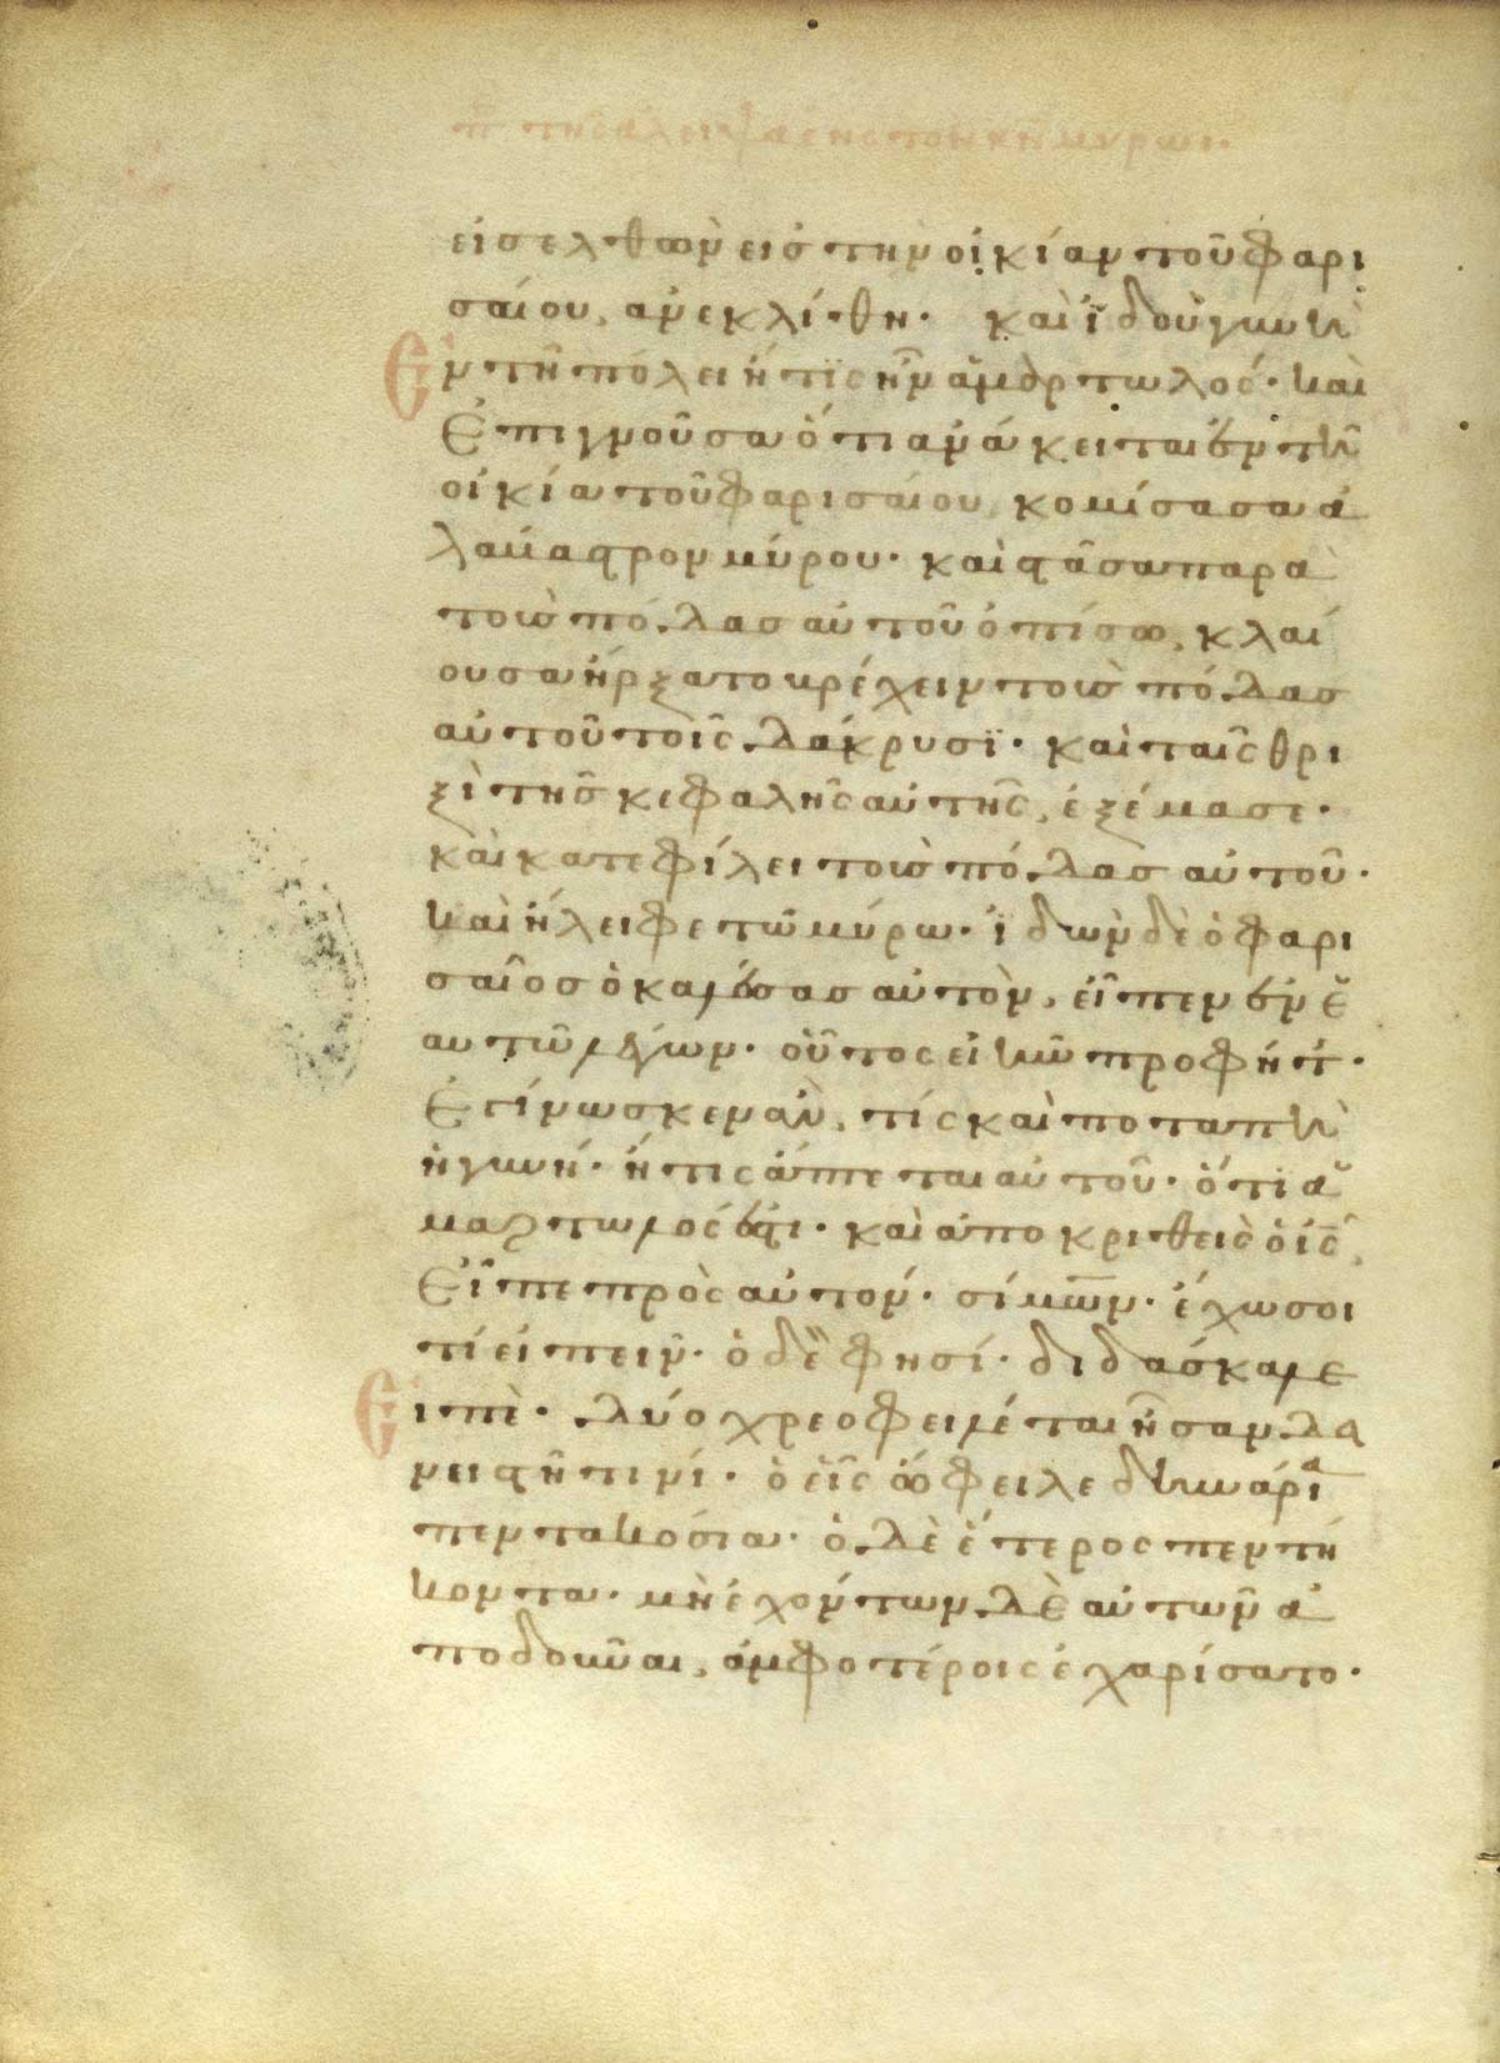 π της αλειψασης τον κν μυρωι·
εἰσελθὼν εἰς τὴν οἰκίαν τοῦ φαρι
σαίου, ἀνεκλίθη· καὶ ἰδοὺ γυνὴ
Ἐν τῆ πόλει ἥτϊς ἦν ἁμαρτωλός· καὶ
ἐπιγνοῦσα ὅτι ἀνάκειται ἐν τῆ
οἰκία τοῦ φαρισαίου, κομίσασα ἀ
λάβαστρον μύρου· καὶ στᾶσα παρὰ
τοὺς πόδας αὐτοῦ ὀπίσω, κλαί
ουσα ἤρξατο βρέχειν τοὺς πόδας
αὐτοῦ τοῖς δάκρυσϊ· καὶ ταῖς θρι
ξὶ τῆς κεφαλῆς αὐτῆς, ἐξέμασε·
καὶ κατεφίλει τοὺς πόδας αὐτοῦ·
καὶ ἤλειφε τῶ μύρω· ἰδὼν δὲ ὁ φαρι
σαῖος ὁ καλέσας αὐτὸν, εἶπεν ἐν ἑ
αυτῶ λέγων· οὗτος εἰ ἦν προφήτ·
ἐγίνωσκεν ἂν, τίς καὶ ποταπὴ
ἡ γυνή· ἥτις ἅπτεται αὐτοῦ· ὅτϊ ἁ
μαρτωλός ἐστι· καὶ ἀποκριθεὶς ὁ ις
εἶπε πρὸς αὐτόν· σίμων· ἔχω σοι
τί εἰπεῖν· ὁ δὲ φησί· διδάσκαλε
Εἰπὲ· δύο χρεοφειλέται ἦσαν δα
νειστῆ τινί· ὁ εἷς ὤφειλε δηνάρια
πεντακόσια· ὁ δὲ ἕτερος πεντή
κοντα· μὴ ἐχόντων δὲ αὐτῶν ἀ
ποδοῦναι, ἀμφοτέροις ἐχαρίσατο·